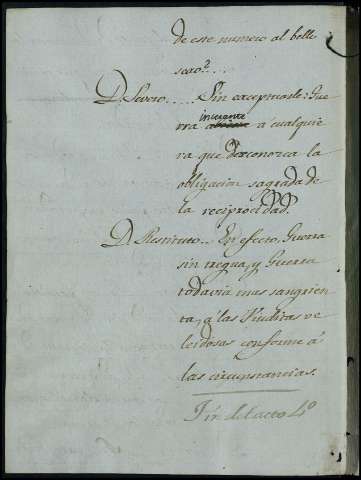 de este numero al bello
sexo?....
D. Severo..... Sin exceptuarle: Gue
rra incesante á cualquie
ra que desconozca la
obligacion sagrada de
la reciprocidad.
D. Restituto... En efecto, Guerra
sin tregua, y Guerra
todavia mas sangrien
ta, á las Viuditas ve
leidosas conforme á
las circunstancias.
Fin del acto 4º